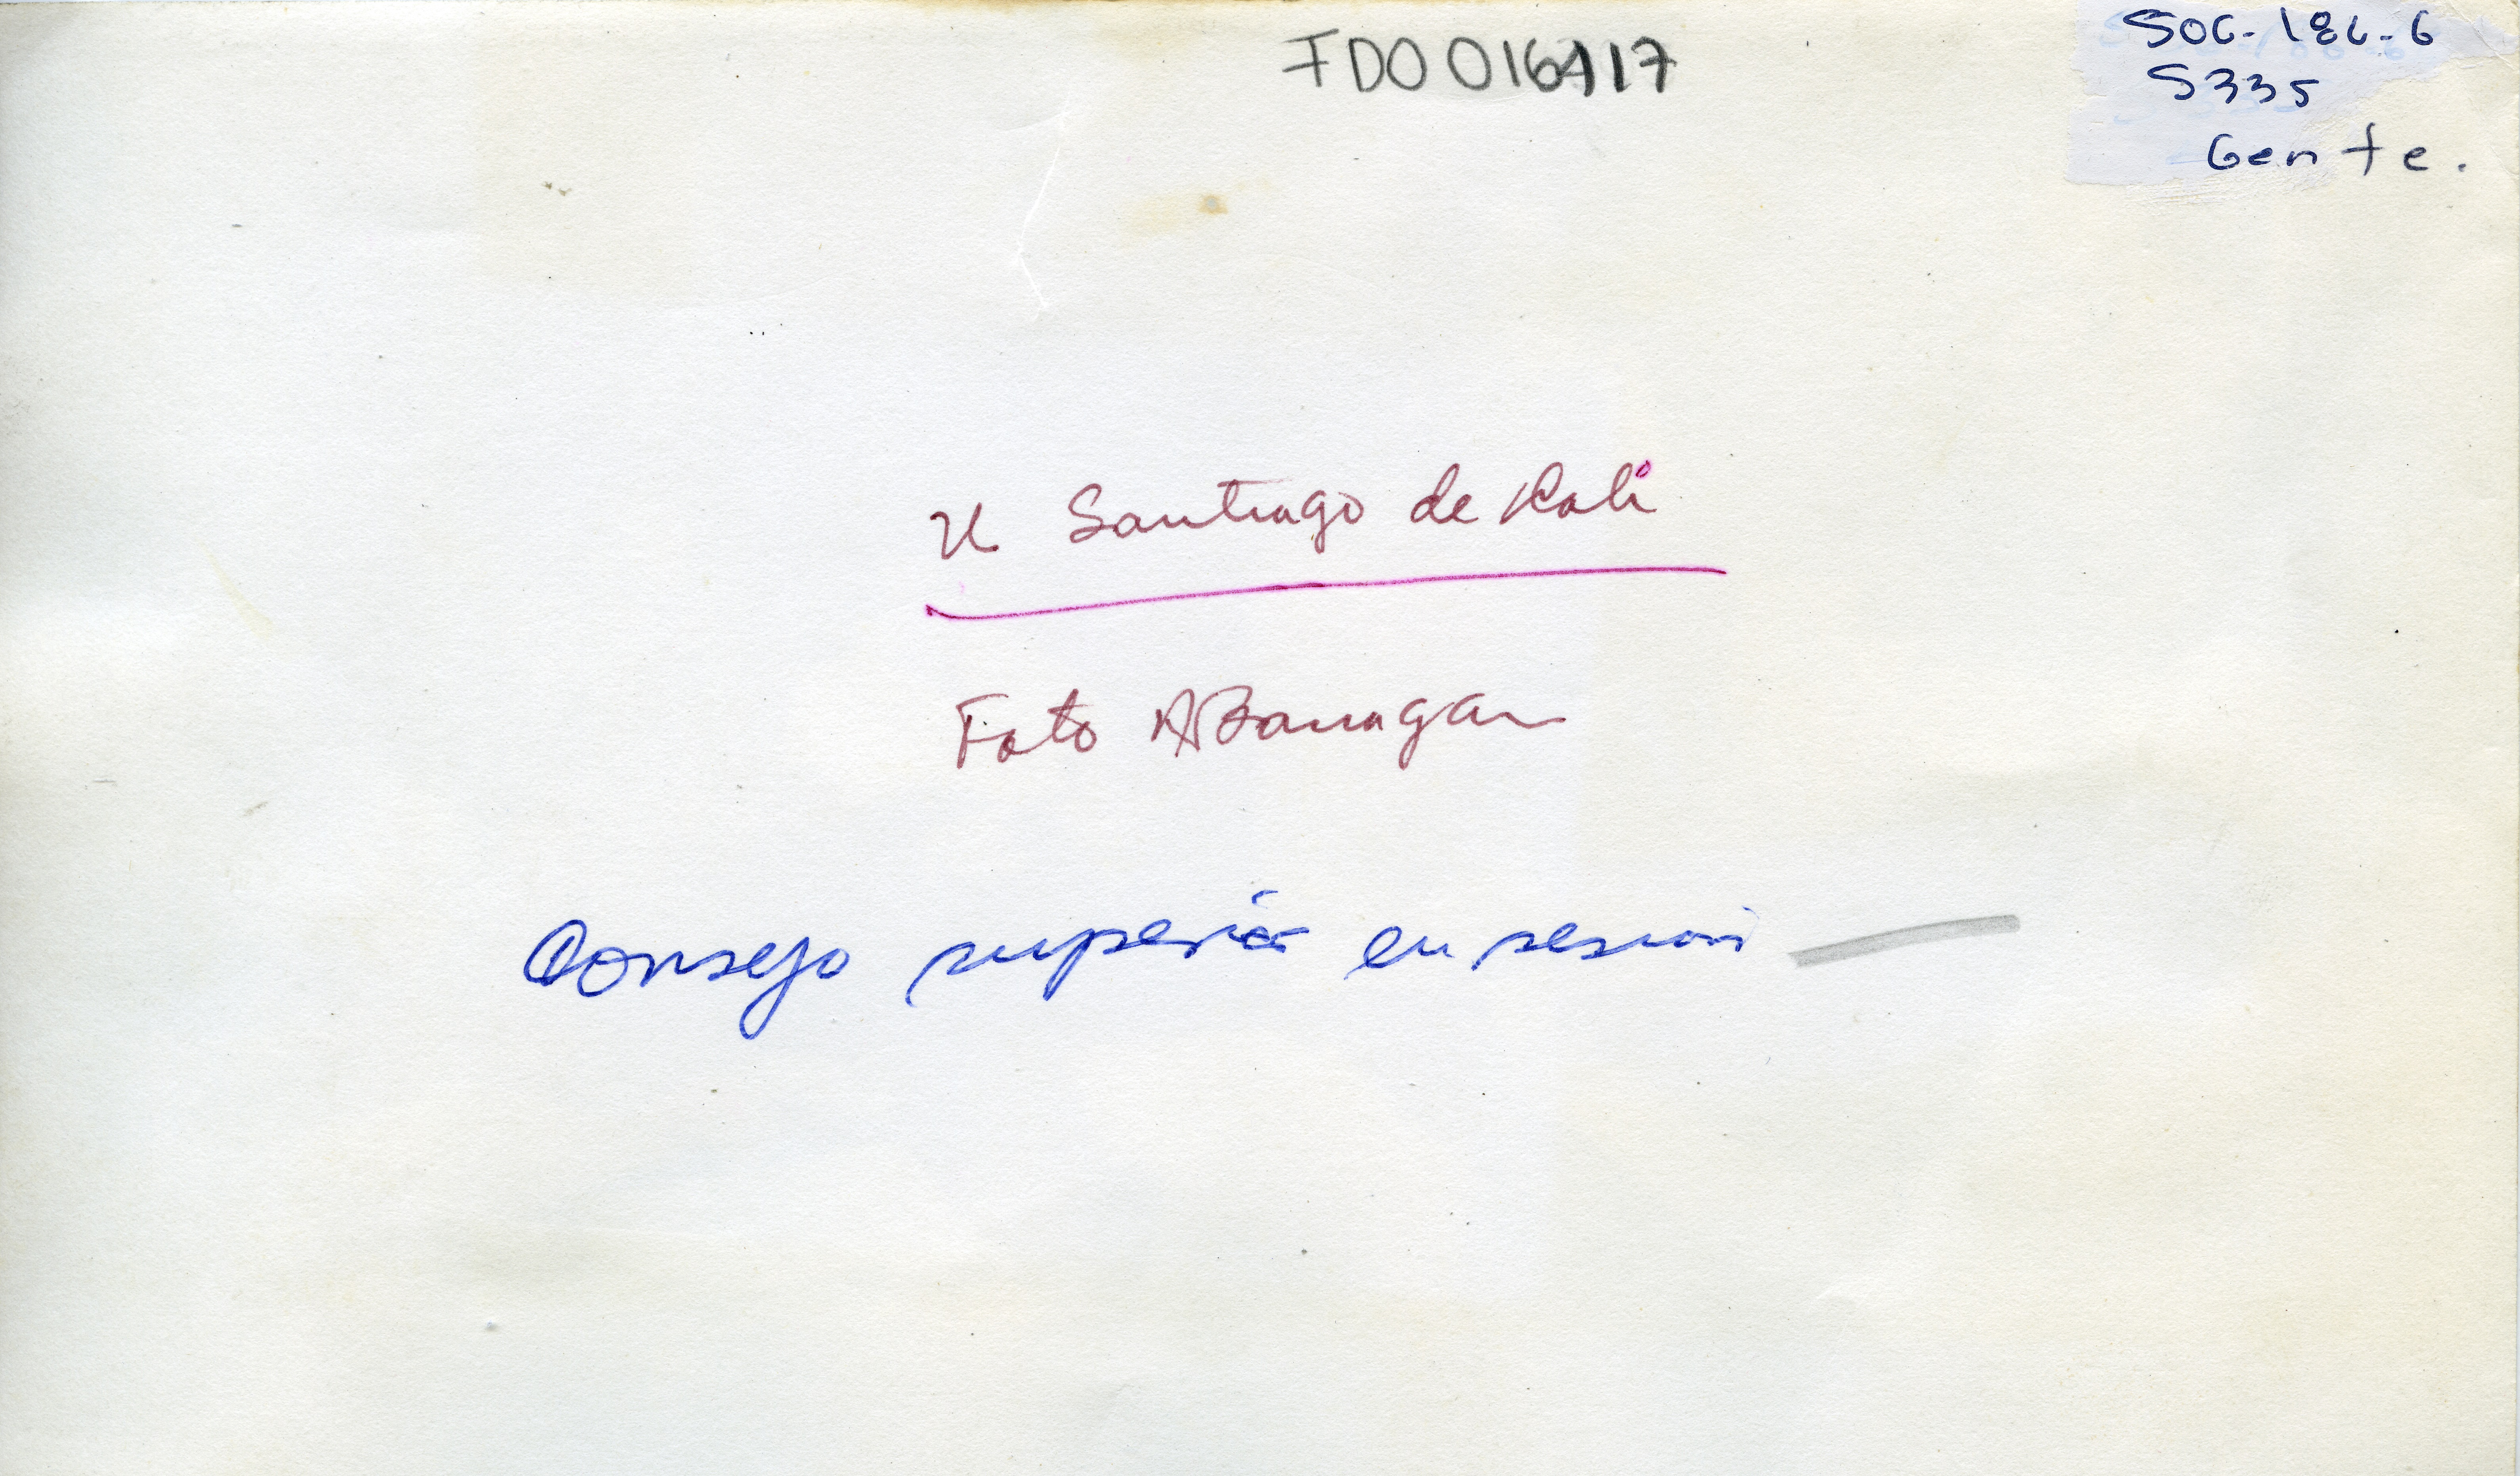 SOC-186-6
S335
Gente.
U Santiago de Kali
Foto ABarragan
Consejo superior en sesión